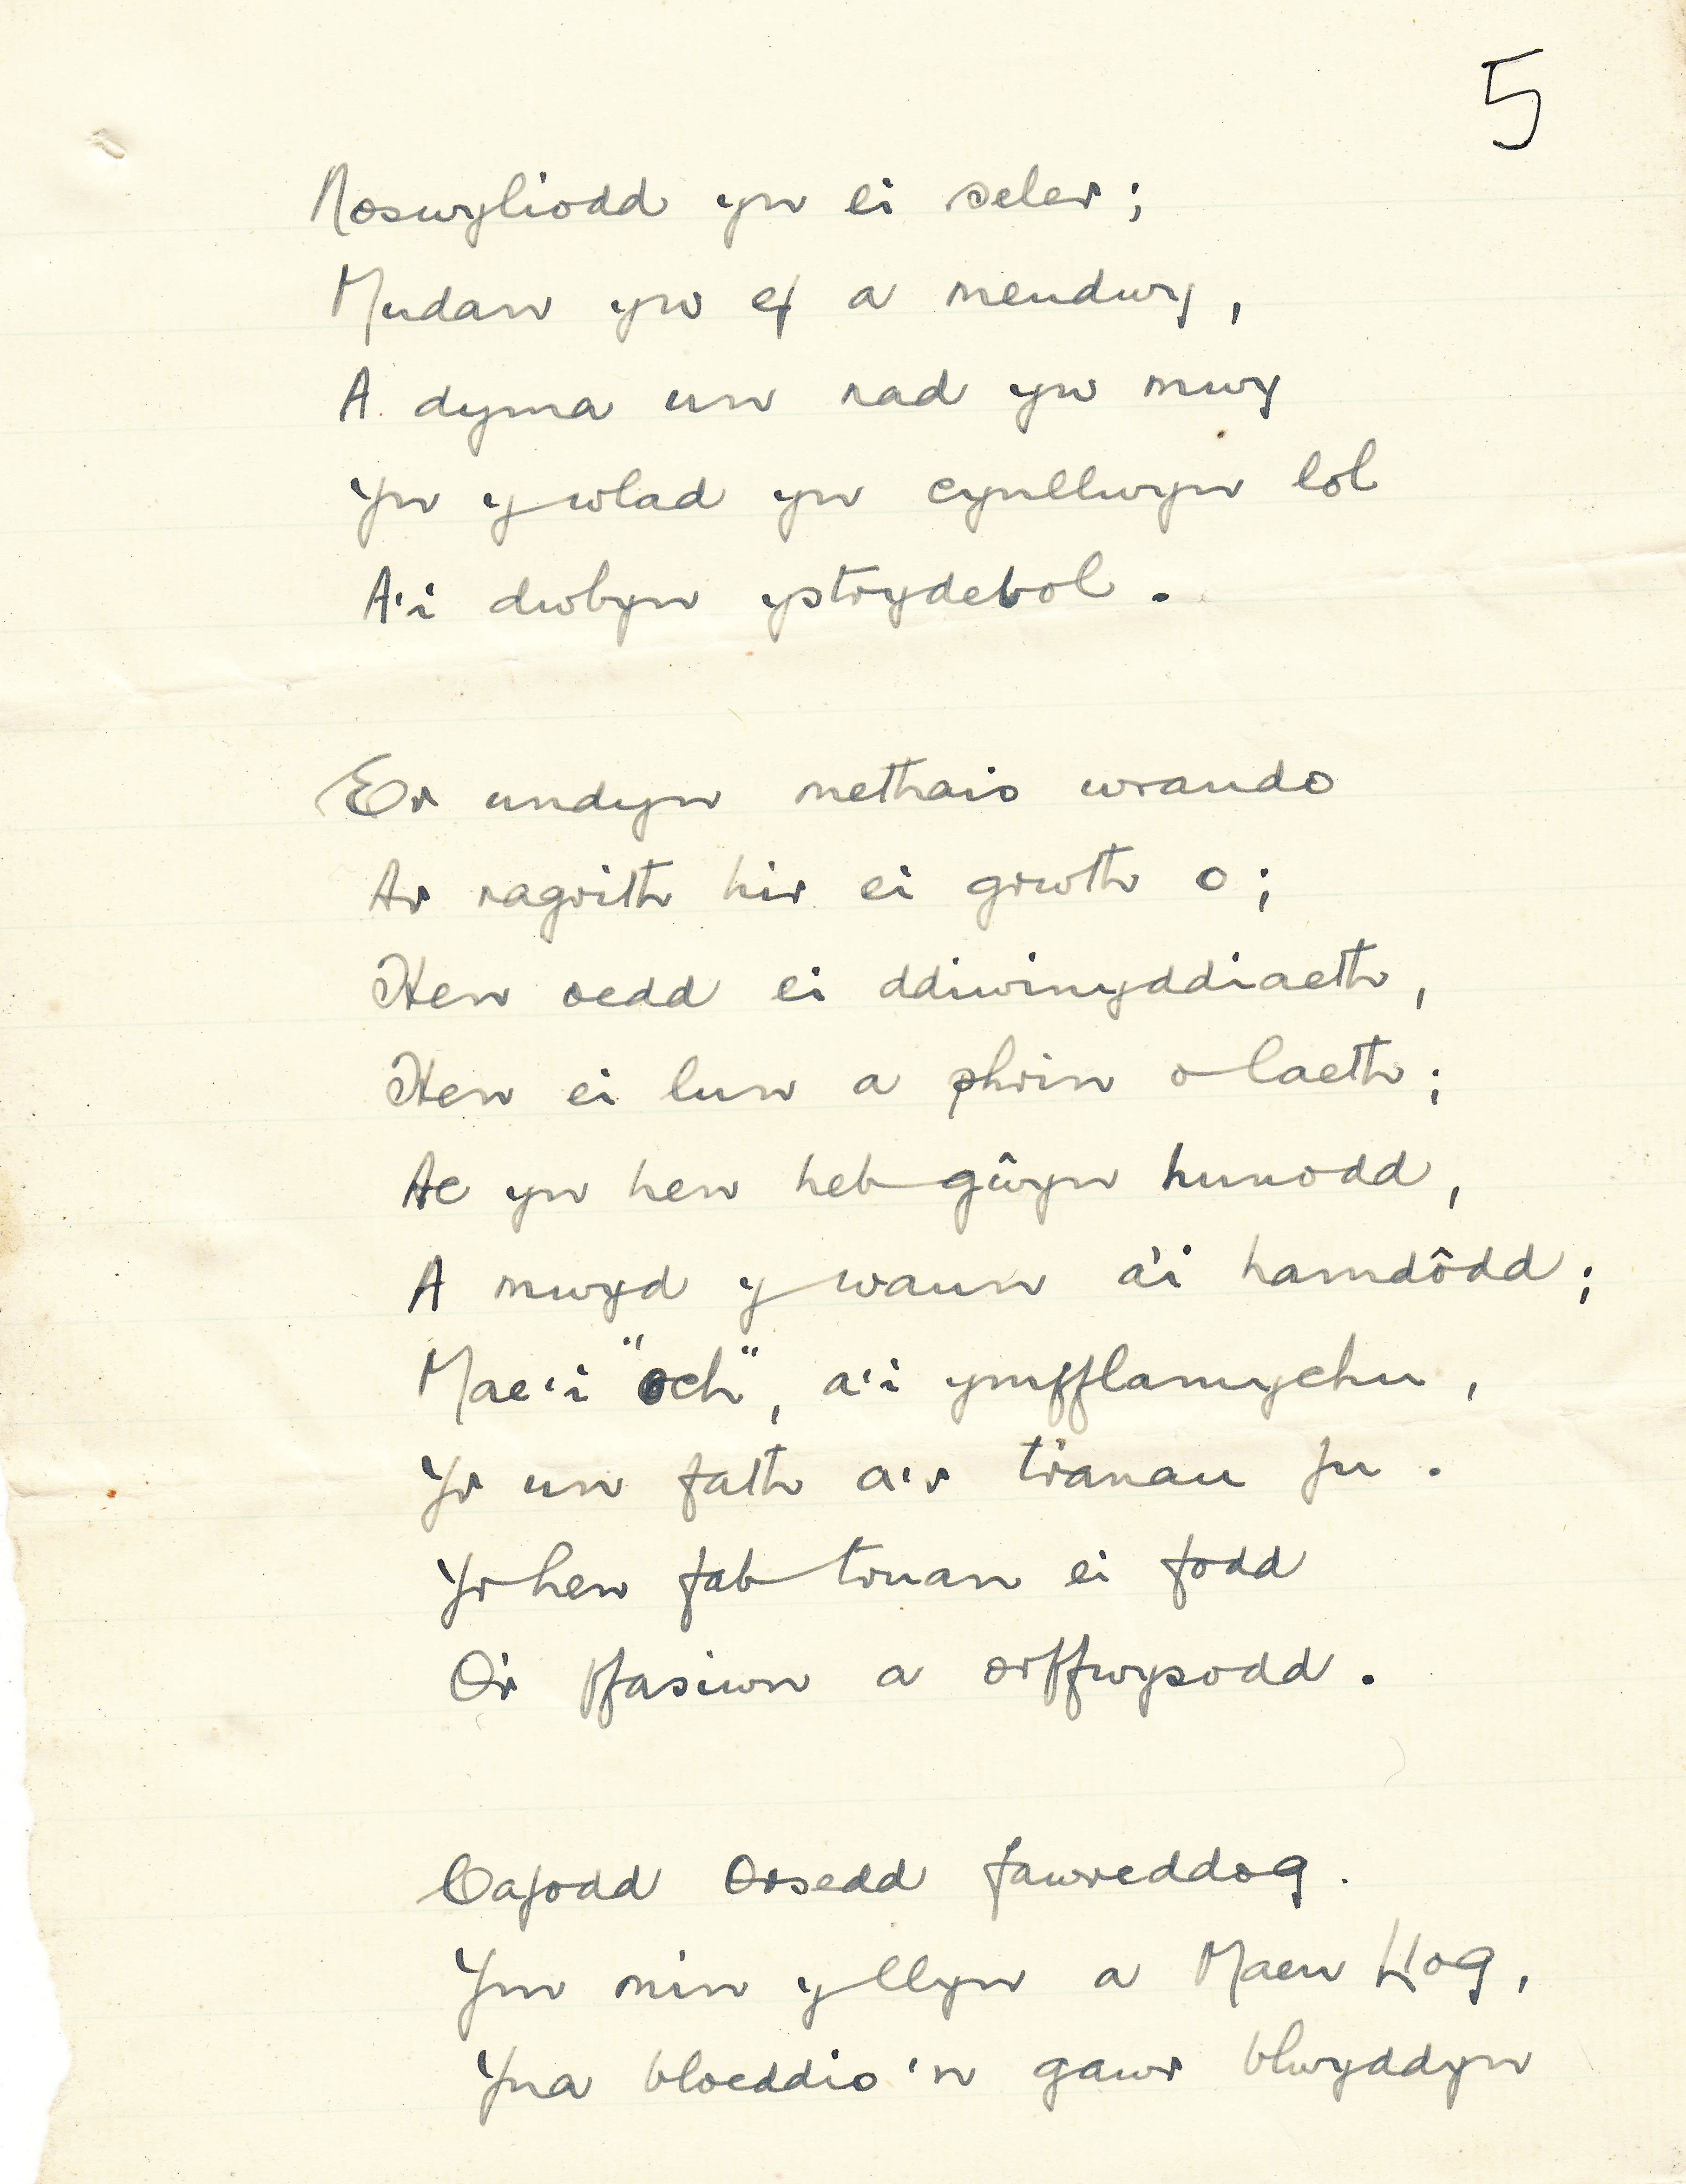 5
Noswyliodd yn ei seler;
Mudan yw ef a meudwy,
A dyma un rad yw mwy
Yn y wlad yn cynllwyn lol
A'i dwbyn ystrydebol.
Er undyn methais wrando
Ar ragrith hir ei grwth o;
Hen oedd ei ddiwinyddiaeth,
Hen ei lun a phrin o laeth;
Ac yn hen heb gŵyn hunodd,
A mwyd y waun a'i hamdôdd;
Mae'i "och", a'i ymfflamychu,
Yr un fath a'r tranau fu.
Yr hen fab truan ei fodd
O'i ffasiwn a orffwysodd.
Cafodd Orsedd fawreddog.
Ym min y llyn a Maen Llog,
Yna bloeddio'n gawr blwyddyn